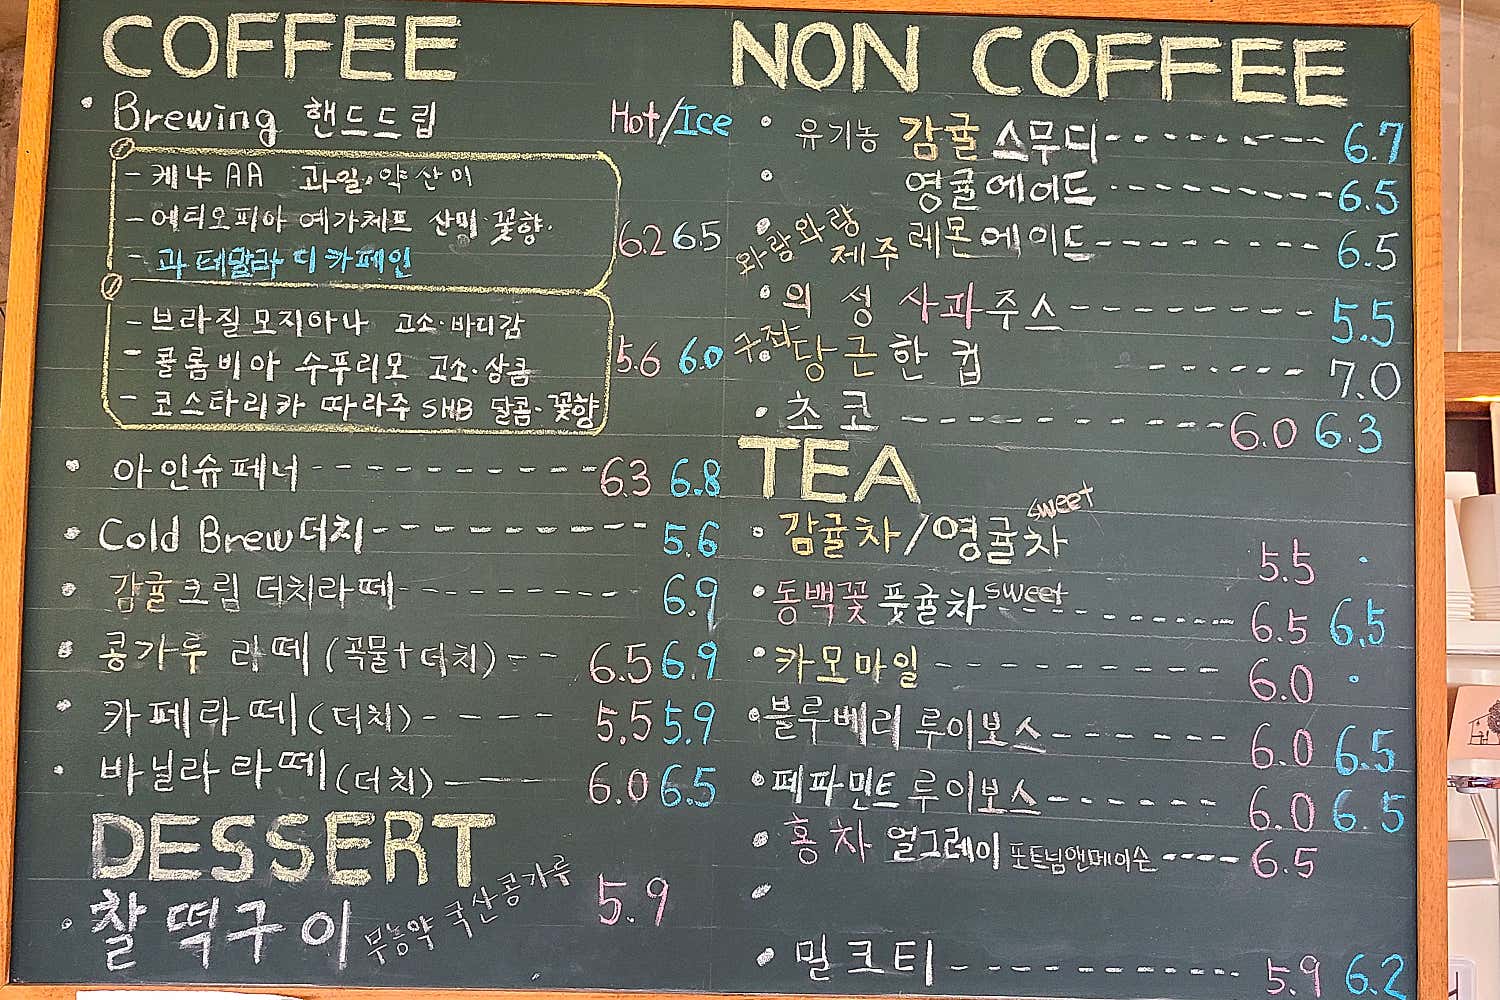 COFFEE
• Brewing 핸드드립 Hot/Ice
- 케냐 AA 과일·약산미
- 에티오피아 예가체프 산미·꽃향·
- 과테말라 디카페인
6.2 6.5
- 브라질 모지아나 고소·바디감
- 콜롬비아 수푸리모 고소·상큼
- 코스타리카 따라주 SHB 달콤·꽃향
5.6 6.0
• 아인슈페너 ---------- 6.3 6.8
• Cold Brew 더치 ---------- 5.6
• 감귤크림 더치라떼 ---------- 6.9
• 콩가루 라떼 (곡물+더치) --- 6.5 6.9
• 카페라떼 (더치) ---- 5.5 5.9
• 바닐라 라떼 (더치) ---- 6.0 6.5
DESSERT
• 찰떡구이 무농약 국산콩가루 5.9
NON COFFEE
• 유기농 감귤 스무디 -------- 6.7
• 영귤에이드 -------- 6.5
• 와랑와랑 제주 레몬에이드 -------- 6.5
• 의성 사과주스 -------- 5.5
• 구좌 당근 한 컵 ------ 7.0
• 초코 ---------- 6.0 6.3
TEA
• 감귤차/영귤차 sweet 5.5 ·
• 동백꽃 풋귤차 sweet ------ 6.5 6.5
• 카모마일 -------- 6.0 ·
• 블루베리 루이보스 ------ 6.0 6.5
• 페파민트 루이보스 ------ 6.0 6.5
• 홍차 얼그레이 포트넘앤메이슨 ---- 6.5
•
• 밀크티 ---------- 5.9 6.2